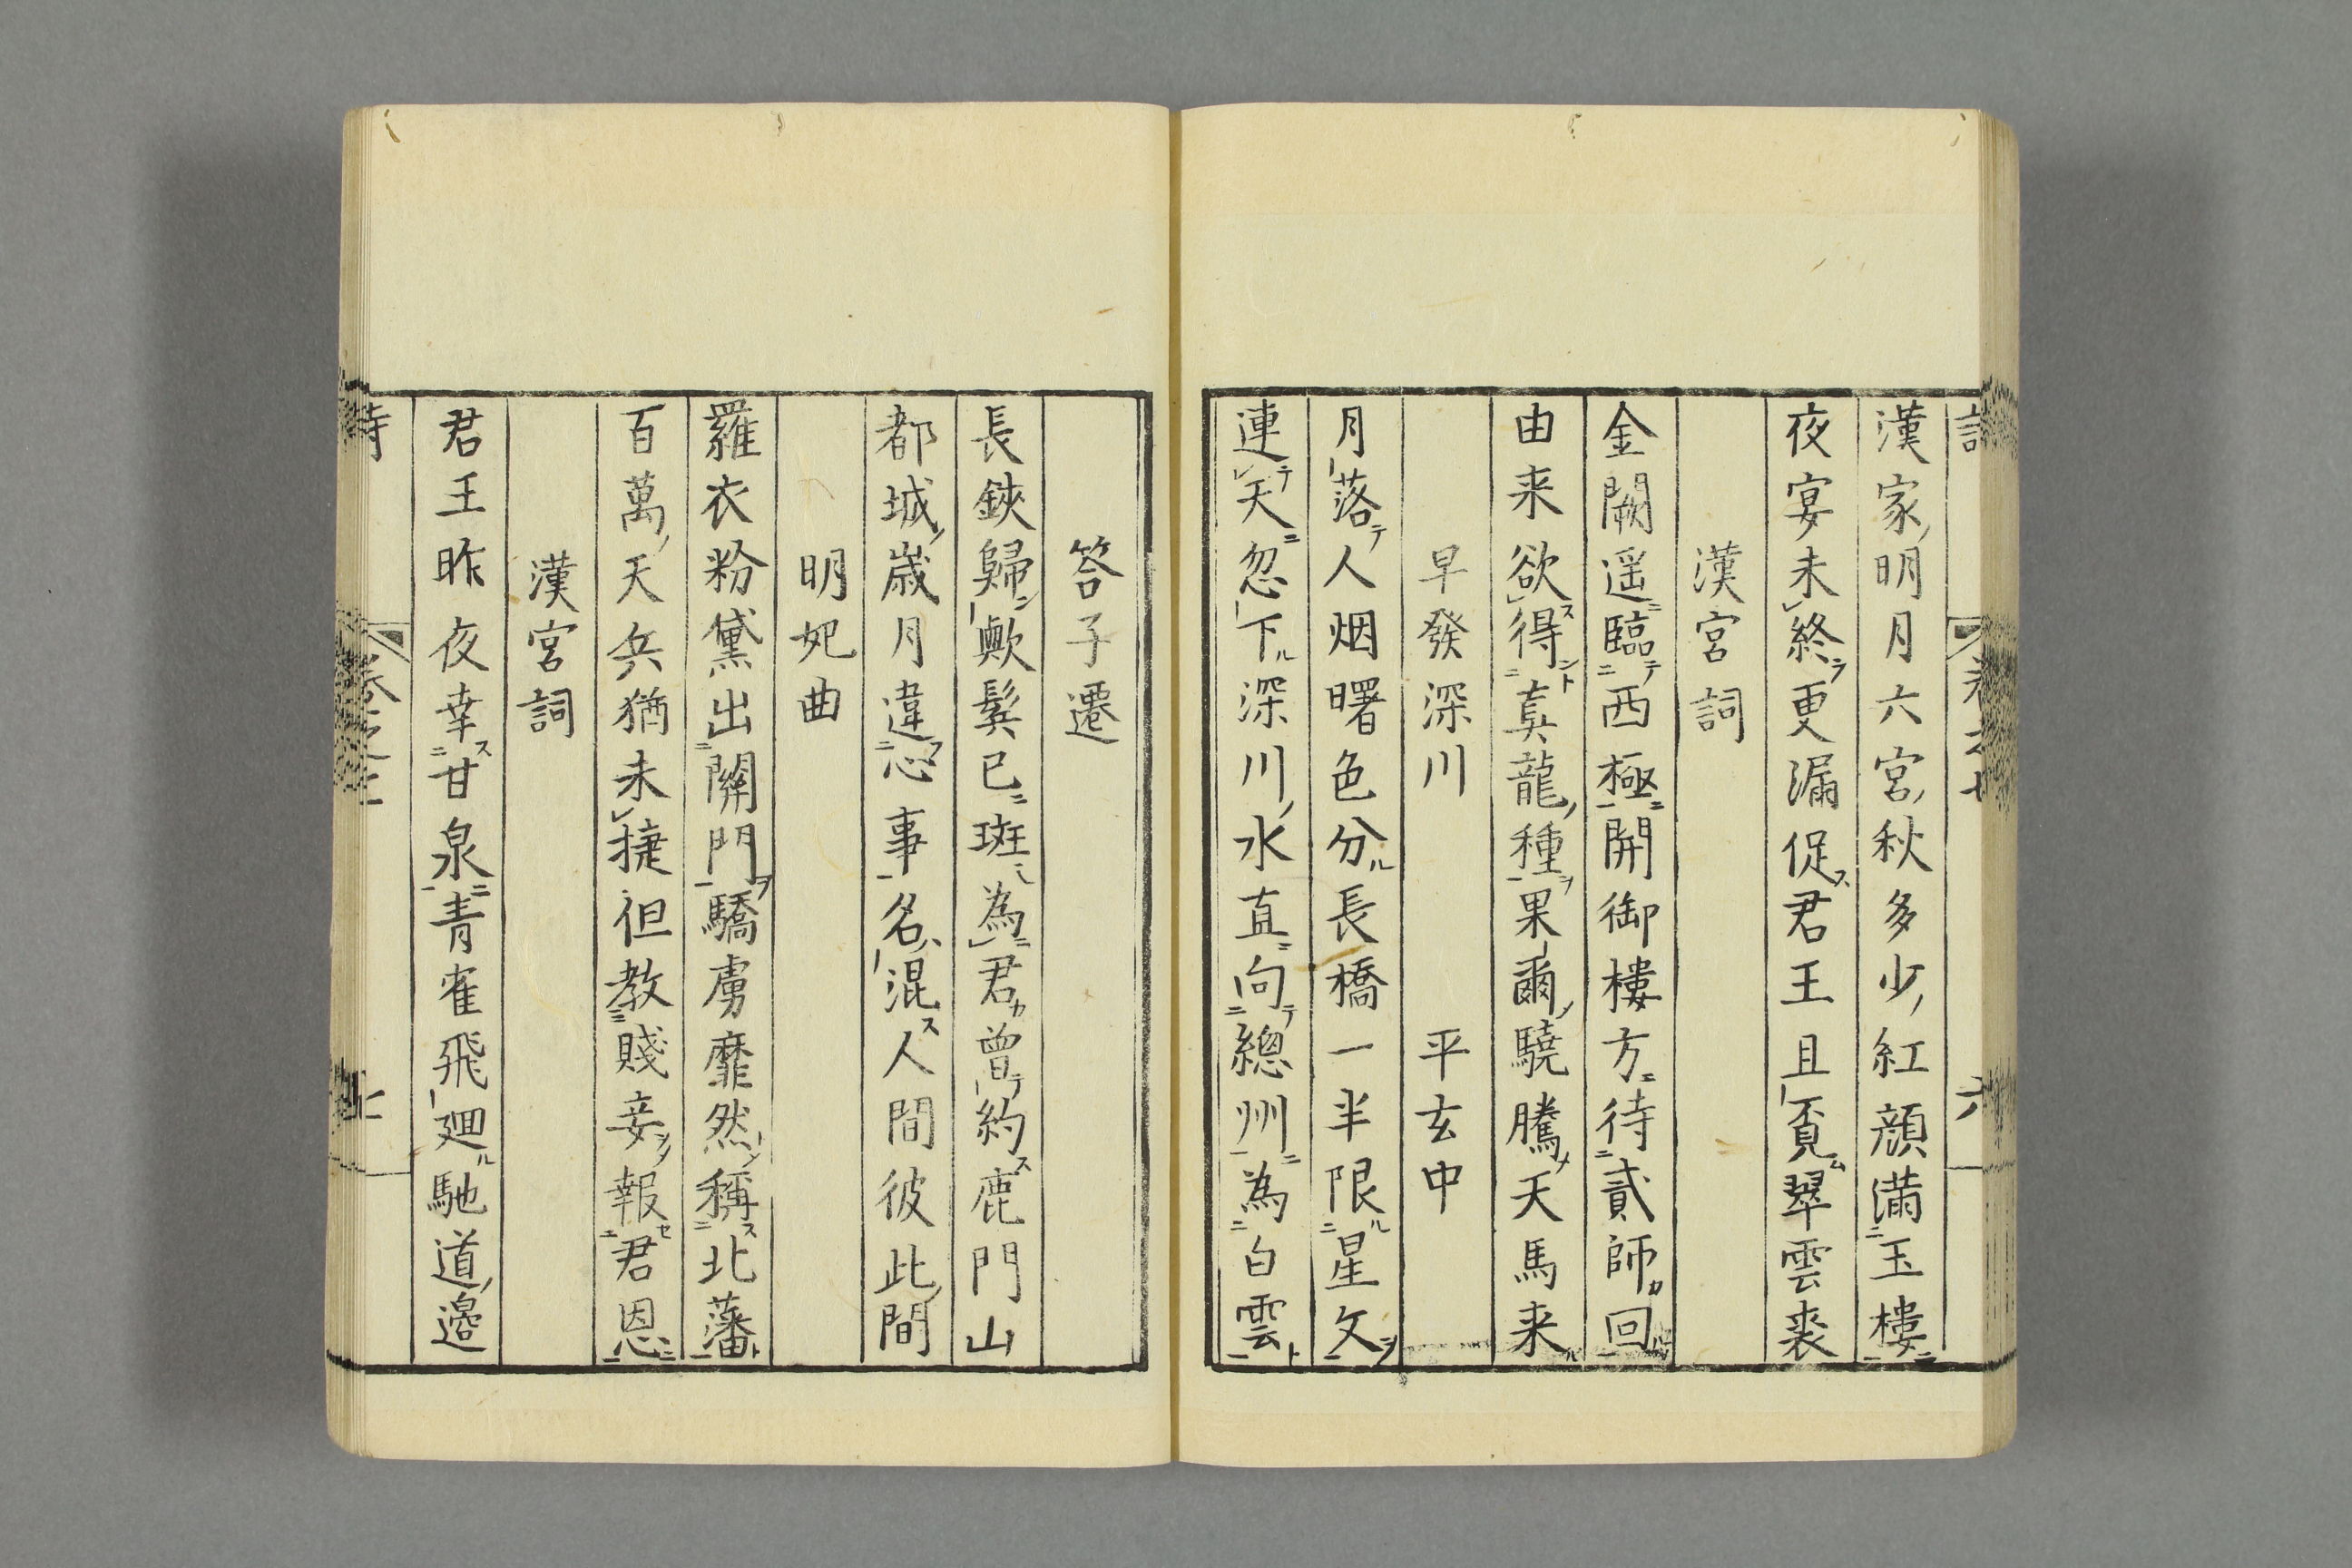 漢家明月六宮秋多少紅顔満玉樓
夜宴未終更漏促君王且覓翠雲裘
漢宮詞
金闕遥臨西極開御樓方待貳師回
由来欲得真龍種果爾驍騰天馬来
早發深川 平玄中
月落人烟曙色分長橋一半限星文
連天忽下深川水直向總州為白雲
答子遷
長鋏歸歟髩已斑為君曾約鹿門山
都城歳月違心事名混人間彼此間
明妃曲
羅衣粉黛出關門驕虜靡然稱北藩
百萬天兵猶未捷但教賤妾報君恩
漢宮詞
君王昨夜幸甘泉青雀飛廻馳道邉